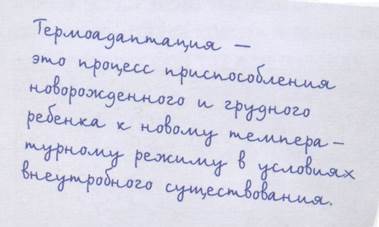 Термоадаптация —
это процесс приспособления
новорожденного и грудного
ребенка к новому темпера-
турному режиму в условиях
внеутробного существования.